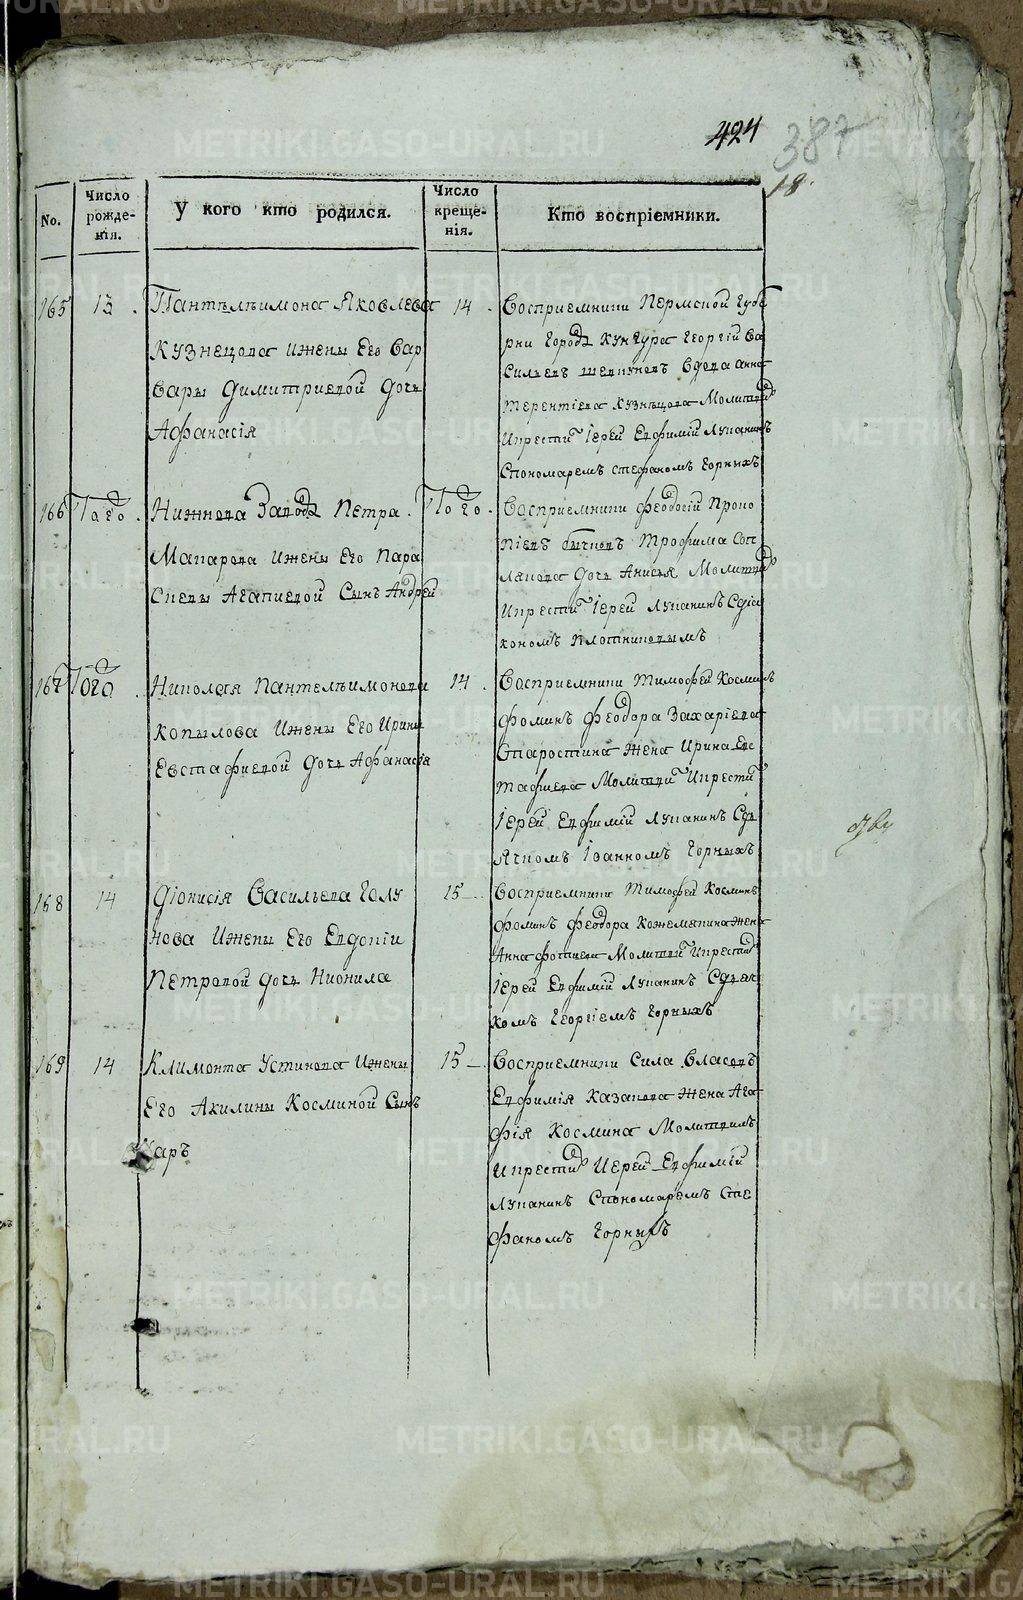 424
387
18.
No.
Число рожде-нія.
У кого кто родился.
Число креще-нія.
Кто воспріемники.
165
13.
Пантелѣимона Яковлева
Кузнецова ижены Его Вар
вары Димитриевой дочь
Афанасія
14.
Восприемники Пермской губе
рни города Кунгура Георгій Ва
сильевъ вдова анна
терентіева Кузнѣцова Молитвой
Икрестил Іерей Евфимій Лупанинъ
Спономаремъ стефаномъ Горныхъ
166
Того.
Нижнева Завода Петра
Макарова ижены Его Пара
скевы Агапиевой Сынъ Андрей
Того.
Восприемники феодосій Проко
піевъ бычковъ Трофима
дочь Анисья Молитвой
Икрестил Іерей Лупанинъ Сдіа
кономъ Плотниковымъ
167
Того.
Николая Пантелѣимонова
Копылова Ижены Его Ирины
Евстафиевой дочь Афанасія
14.
Восприемники Тимофей Косминъ
фоминъ феодора Захаріева
Старостина жена Ирина Евс
тафиева Молитвой Икрестил
Іерей Евфимій Лупанинъ Сдь
ячкомъ Іоанномъ Горныхъ
168
14
Діонисія Васильева Голу
нова Ижены Его Евдокіи
Петровой дочь Нионила
15
Восприемники Тимофей Косминъ
фоминъ феодора Кожемякина жена
Анна фотиева Молитвой Икрестил
Іерей Евфимій Лупанинъ Сдьяч
комъ Георгіемъ Горныхъ
169
14
Климонта Устинова Ижены
Его Акилины Косминой Сынъ
15
Восприемники Сила Власовъ
Евфимія Казакова жена Ага
фія Космина Молитвилъ
Икрестил Иерей Евфимій
Лупанинъ Спономаремъ Сте
фаномъ Горныхъ
METRIKI.GASO-URAL.RU